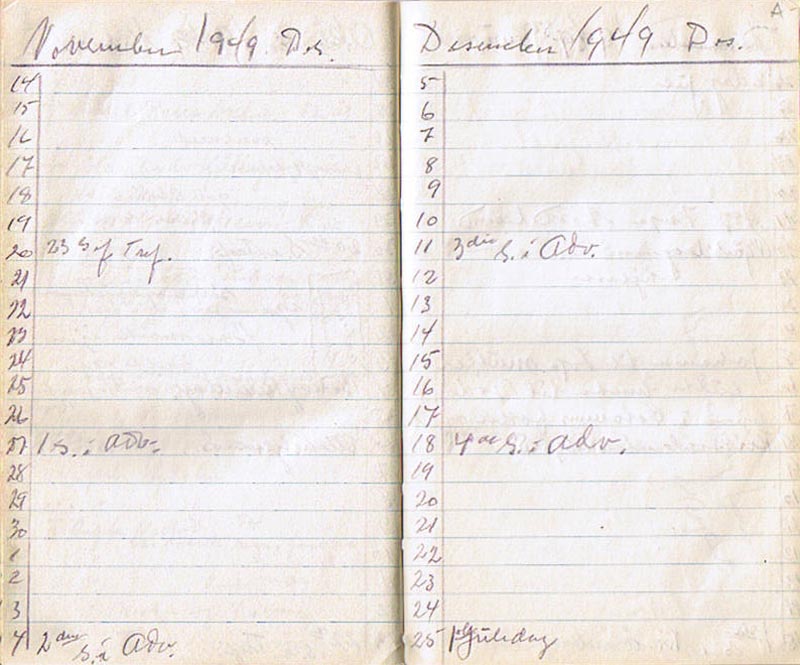 November 1949. Des.
14
15
16
17
18
19
20 23 S. ef. Tref.
21
22
23
24
25
26
27 1 s. i Adv.
28
29
30
1
2
3
4 2den S. i Adv.
A
Desember 1949 Des.
5
6
7
8
9
10
11 3die S. i Adv.
12
13
14
15
16
17
18 4de S. i Adv.
19
20
21
22
23
24
25 1ste Juledag